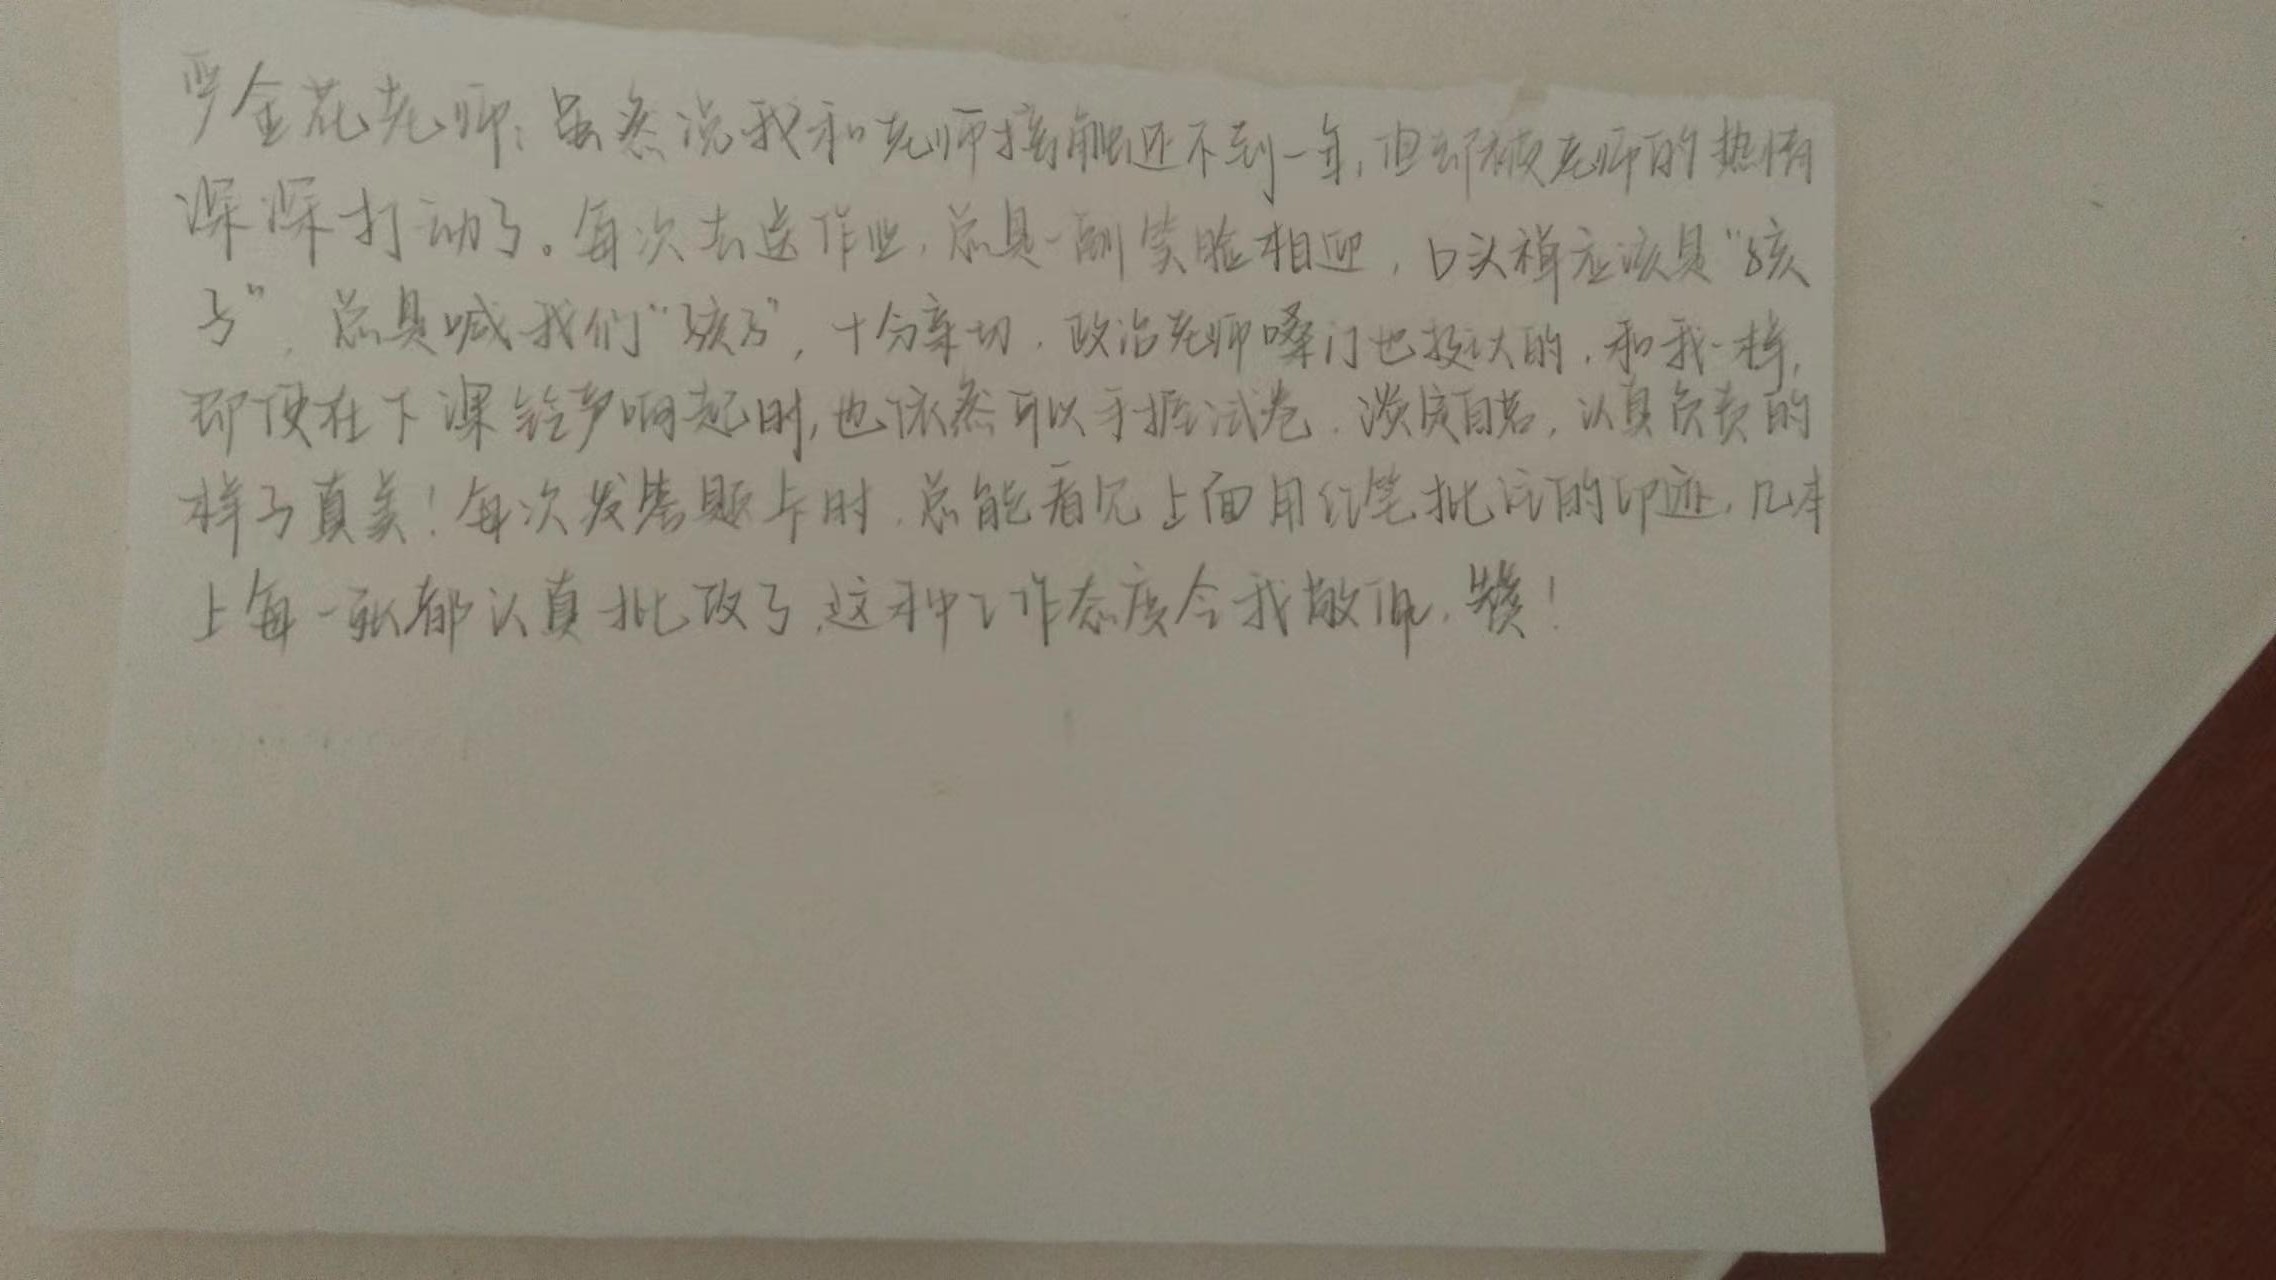 严金花老师：虽然说我和老师接触还不到一年，但却被老师的热情
深深打动了。每次去送作业，总是一副笑脸相迎，口头禅应该是“孩
子”，总是喊我们“孩子”，十分亲切，政治老师嗓门也挺大的，和我一样，
即使在下课铃声响起时，也依然可以手握试卷，淡定自若，认真负责的
样子真美！每次发答题卡时，总能看见上面用红笔批注的印迹，几本
上每一张都认真批改了，这种工作态度令我敬佩，赞！